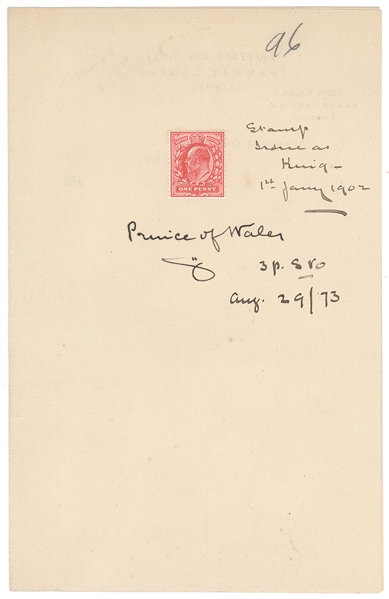 96
Stamp
Issue as
King -
1st Jany 1902
ONE PENNY
Prince of Wales
3 p. 8vo
Aug. 29/73